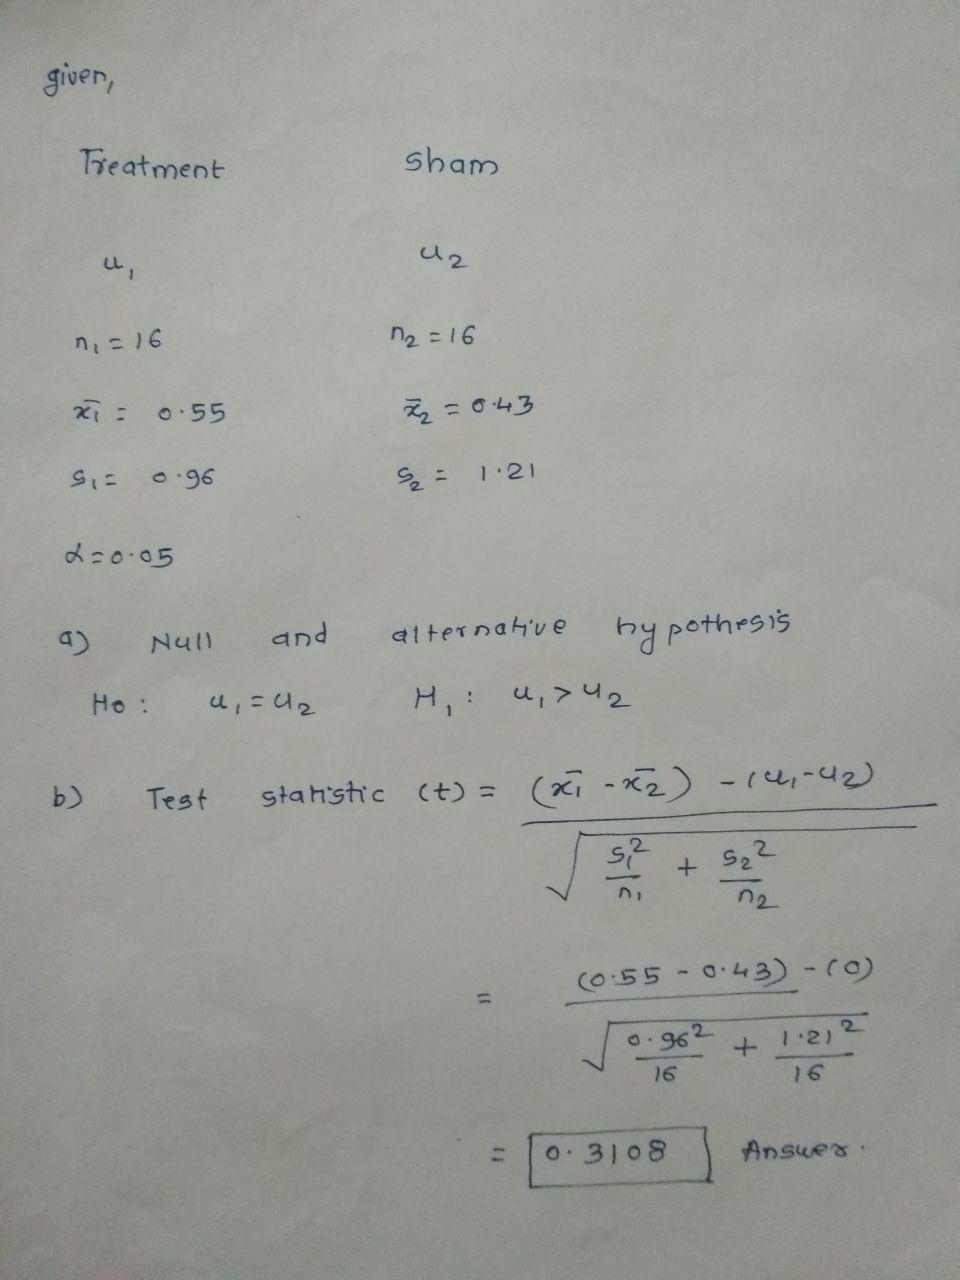 given,
Treatment sham
u₁ u₂
n₁ = 16 n₂ = 16
x̄₁ = 0.55 x̄₂ = 0.43
s₁ = 0.96 s₂ = 1.21
α = 0.05
a) Null and alternative hypothesis
Ho : u₁ = u₂ H₁ : u₁ > u₂
b) Test statistic (t) = (x̄₁ - x̄₂) - (u₁ - u₂)
√ s₁²/n₁ + s₂²/n₂
= (0.55 - 0.43) - (0)
√ 0.96²/16 + 1.21²/16
= 0.3108 Answer.